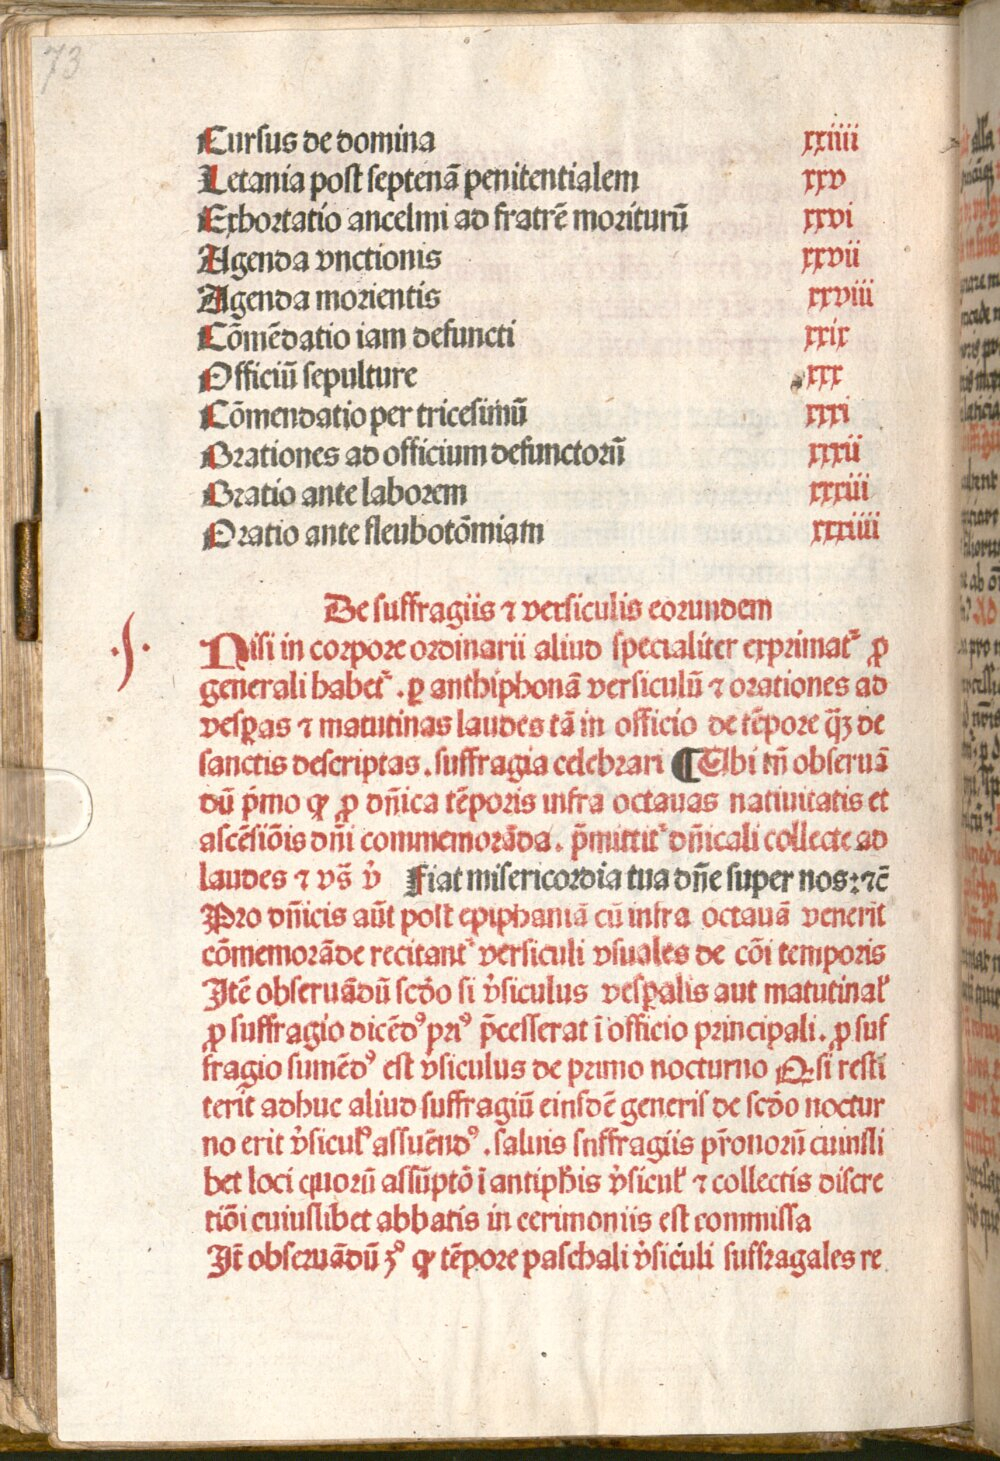 73
Cursus de domina xxiiii
Letania post septenā penitentialem xxv
Exhortatio ancelmi ad fratrē moriturū xxvi
Agenda vnctionis xxvii
Agenda morientis xxviii
Cōmēdatio iam defuncti xxix
Officiū sepulture xxx
Cōmendatio per tricesimū xxxi
Orationes ad officium defunctorū xxxii
Oratio ante laborem xxxiii
Oratio ante fleubotōmiam xxxiiii
De suffragiis ⁊ versiculis eorundem
Nisi in corpore ordinarii aliud specialiter exprimat᷑ ꝓ
generali habet᷑ . ꝑ anthiphonā versiculū ⁊ orationes ad
vesꝑas ⁊ matutinas laudes tā in officio de tēpore q̄ꝫ de
sanctis descriptas . suffragia celebrari ¶ Tibi tn̄ obseruā
dū p̄mo ꝙ ꝓ dn̄ica tēporis infra octauas natiuitatis et
ascēsiōis dn̄i commemorāda . p̄mittit᷑ dn̄icali collecte ad
laudes ⁊ vs̄ v̇ Fiat misericordia tua dn̄e super nos : ⁊c̄
Pro dn̄icis aūt post epiphaniā cū infra octauā venerit
cōmemorāde recitant᷑ versiculi vsuales de cōi temporis
Itē obseruādū scd̄o si v̇siculus vesꝑalis aut matutinaƚ
ꝓ suffragio dicēdꝰ priꝰ p̄cesserat ī officio principali . ꝓ suf
fragio sumēdꝰ est v̇siculus de primo nocturno Q̢ si resti
terit adhuc aliud suffragiū eiusdē generis de scd̄o noctur
no erit v̇siculꝰ assuēndꝰ . saluis suffragiis pr̄onorū cuiusli
bet loci quorū assūptō ī antiph̄is v̇sicuƚ ⁊ collectis discre
tiōi cuiuslibet abbatis in cerimoniis est commissa
It̄ obseruādū ꝫꝰ ꝙ tēpore paschali v̇siculi suffragales re